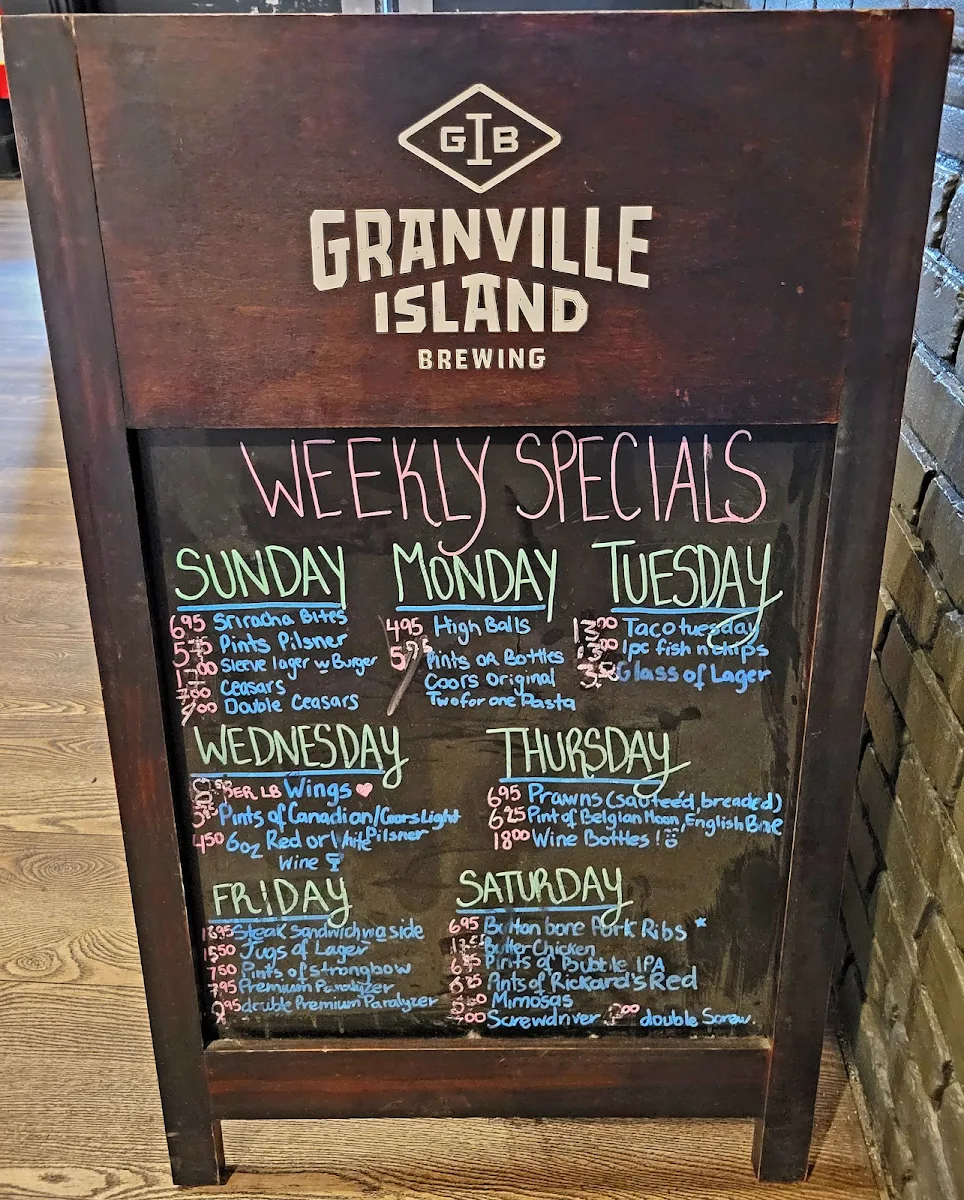 GIB
GRANVILLE
ISLAND
BREWING
WEEKLY SPECIALS
SUNDAY
695 Sriracha Bites
Pints Pilsner
Sleeve lager w Burger
700 Ceasars
900 Double Ceasars
MONDAY
495 High Balls
Pints OR Bottles
Coors Original
Two for one Pasta
TUESDAY
1300 Taco tuesday
1pc fish n chips
Glass of Lager
WEDNESDAY
PER LB Wings
Pints of Canadian/Coors Light
Pilsner
450 6oz Red or White
Wine
THURSDAY
695 Prawns (sauteéd, breaded)
625 Pint of Belgian Moon, English Bae
1800 Wine Bottles!
FRIDAY
1895 Steak Sandwich w a side
1550 Jugs of Lager
750 Pints of strongbow
795 Premium Paralyzer
995 double Premium Paralyzer
SATURDAY
695 Button bone Pork Ribs
Butter Chicken
Pints of Bubble IPA
625 Pints of Rickard's Red
Mimosas
Screwdriver double Screw.